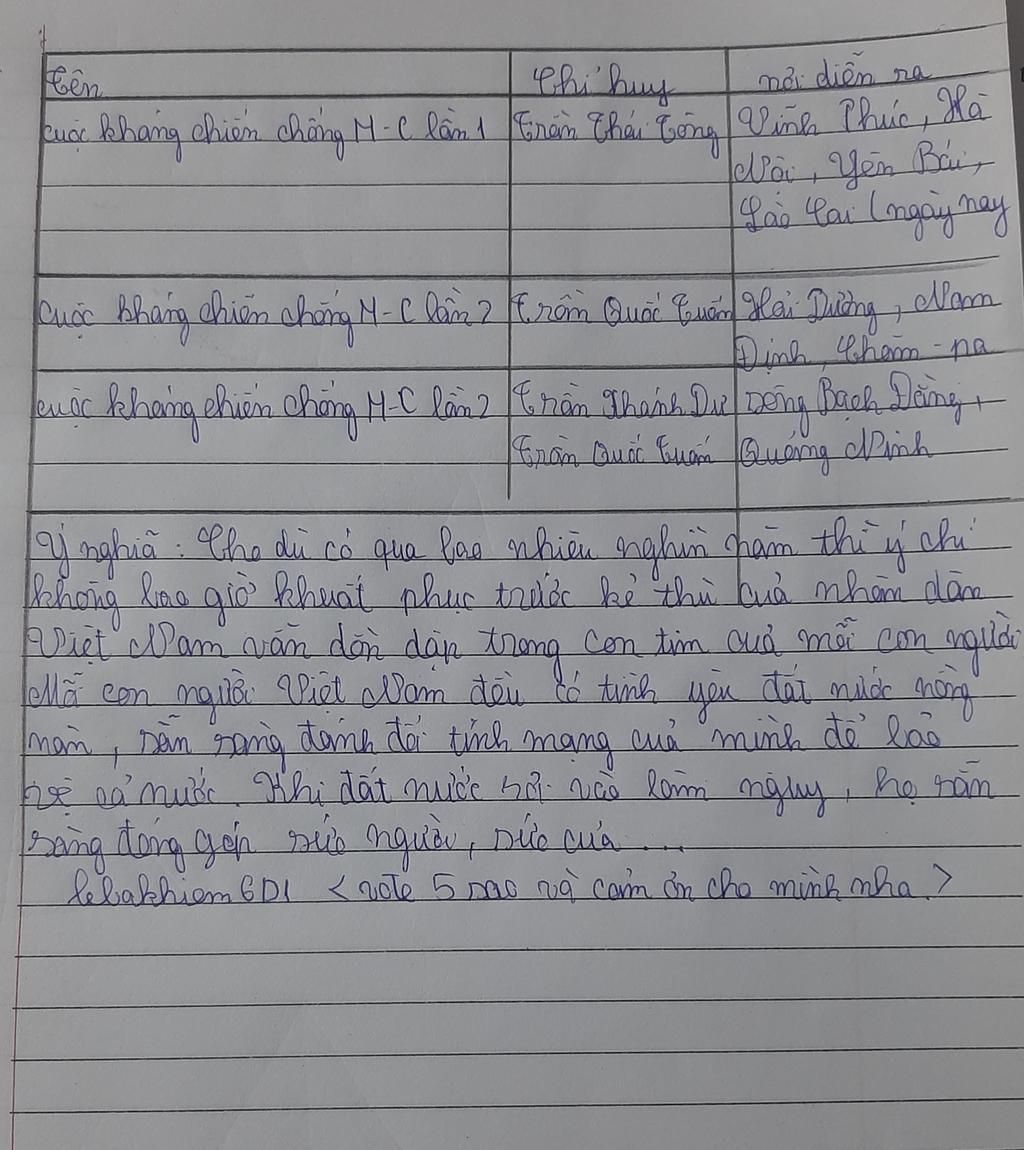 tên
Chỉ huy
nơi diễn ra
cuộc kháng chiến chống M-C lần 1
Trần Thái Tông
Vĩnh Phúc, Hà
Nội, Yên Bái,
Lào Cai (ngày nay
cuộc kháng chiến chống M-C lần 2
Trần Quốc Tuấn
Hải Dương, Nam
Định, Chăm-pa
cuộc kháng chiến chống M-C lần 2
Trần Khánh Dư
sông Bạch Đằng,
Trần Quốc Tuấn
Quảng Ninh
Ý nghĩa : Cho dù có qua bao nhiêu nghìn năm thì ý chí
không bao giờ khuất phục trước kẻ thù của nhân dân
Việt Nam vẫn dồn dập trong con tim của mỗi con người
Mỗi con người Việt Nam đều có tình yêu đất nước nồng
nàn, sẵn sàng đánh đổi tính mạng của mình để bảo
vệ cả nước. Khi đất nước rơi vào lâm nguy, họ sẵn
sàng đóng góp sức người, sức của ...
lebakhiem6D1 < vote 5 sao và cảm ơn cho mình nha >